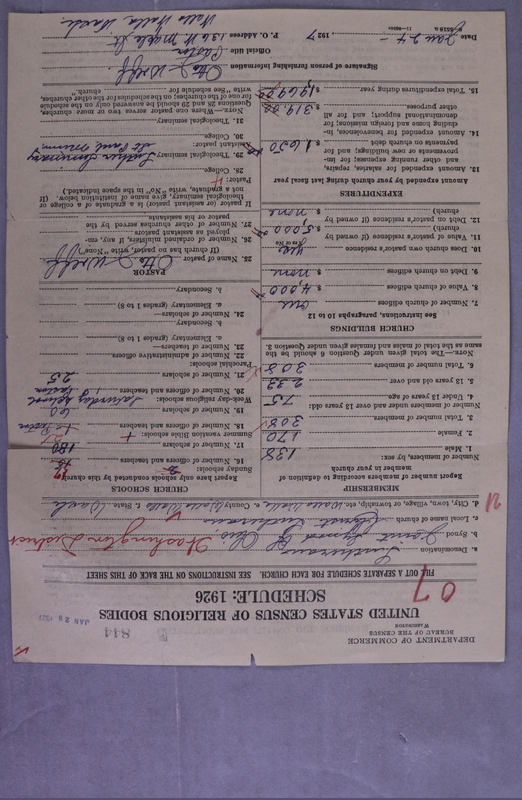 DEPARTMENT OF COMMERCE
BUREAU OF THE CENSUS
WASHINGTON
844
JAN 28 1927
UNITED STATES CENSUS OF RELIGIOUS BODIES
SCHEDULE: 1926
07
FILL OUT A SEPARATE SCHEDULE FOR EACH CHURCH. SEE INSTRUCTIONS ON THE BACK OF THIS SHEET
a. Denomination Lutheran
b. Synod Joint Synod of Ohio Washington District
c. Local name of church Lutheran
d. City, town, village, or township, etc. Walla Walla e. County Walla Walla f. State Wash
MEMBERSHIP
Report number of members according to definition of member in your church
Number of members, by sex:
1. Male 138
2. Female 170
3. Total number of members 308
Number of members under and over 13 years old:
4. Under 13 years of age 75
5. 13 years old and over 233
6. Total number of members 308
NOTE.—The total given under Question 6 should be the same as the total of males and females given under question 3.
CHURCH BUILDINGS
See instructions, paragraphs 10 to 12
7. Number of church edifices one
8. Value of church edifices $ 4,000
9. Debt on church edifices $ none
10. Does church own pastor's residence yes
(Yes or No)
11. Value of pastor's residence (if owned by church) $ 5,000
12. Debt on pastor's residence (if owned by church) $ none
EXPENDITURES
Amount expended by your church during last fiscal year
13. Amount expended for salaries, repairs, and other running expenses; for improvements or new buildings; and for payments on church debt $ 1650
14. Amount expended for benevolences, including home and foreign missions; for denominational support; and for all other purposes $ 319.00
15. Total expenditures during year $ 1969.00
CHURCH SCHOOLS
Report here only schools conducted by this church
Sunday schools:
16. Number of officers and teachers
17. Number of scholars 180
Summer vacation Bible schools:
18. Number of officers and teachers 1-Pastor
19. Number of scholars 60
Week-day religious schools: Saturday school
20. Number of officers and teachers Pastor
21. Number of scholars 25
Parochial schools:
22. Number of administrative officers
23. Number of teachers—
a. Elementary (grades 1 to 8)
b. Secondary
24. Number of scholars—
a. Elementary (grades 1 to 8)
b. Secondary
PASTOR
25. Name of pastor Otto J Wolff
(If church has no pastor, write "None")
26. Number of ordained ministers, if any, employed as assistant pastors
27. Number of other churches served by the pastor or his assistants
If pastor (or assistant pastor) is a graduate of a college or theological seminary, give name of institution below. (If not a graduate, write "No" in the space indicated.)
Pastor:
28. College
29. Theological seminary Luther Seminary
St Paul Minn.
Assistant pastor:
30. College
31. Theological seminary
NOTE.—Where one pastor serves two or more churches, Questions 28 and 29 should be answered only on the schedule for one of the churches; on the schedules for the other churches, write "See schedule for
Signature of person furnishing information Otto J Wolff
Official title Pastor
Date Jan 24 - 1927 P. O. Address 136 W Maple St.
Walla Walla Wash